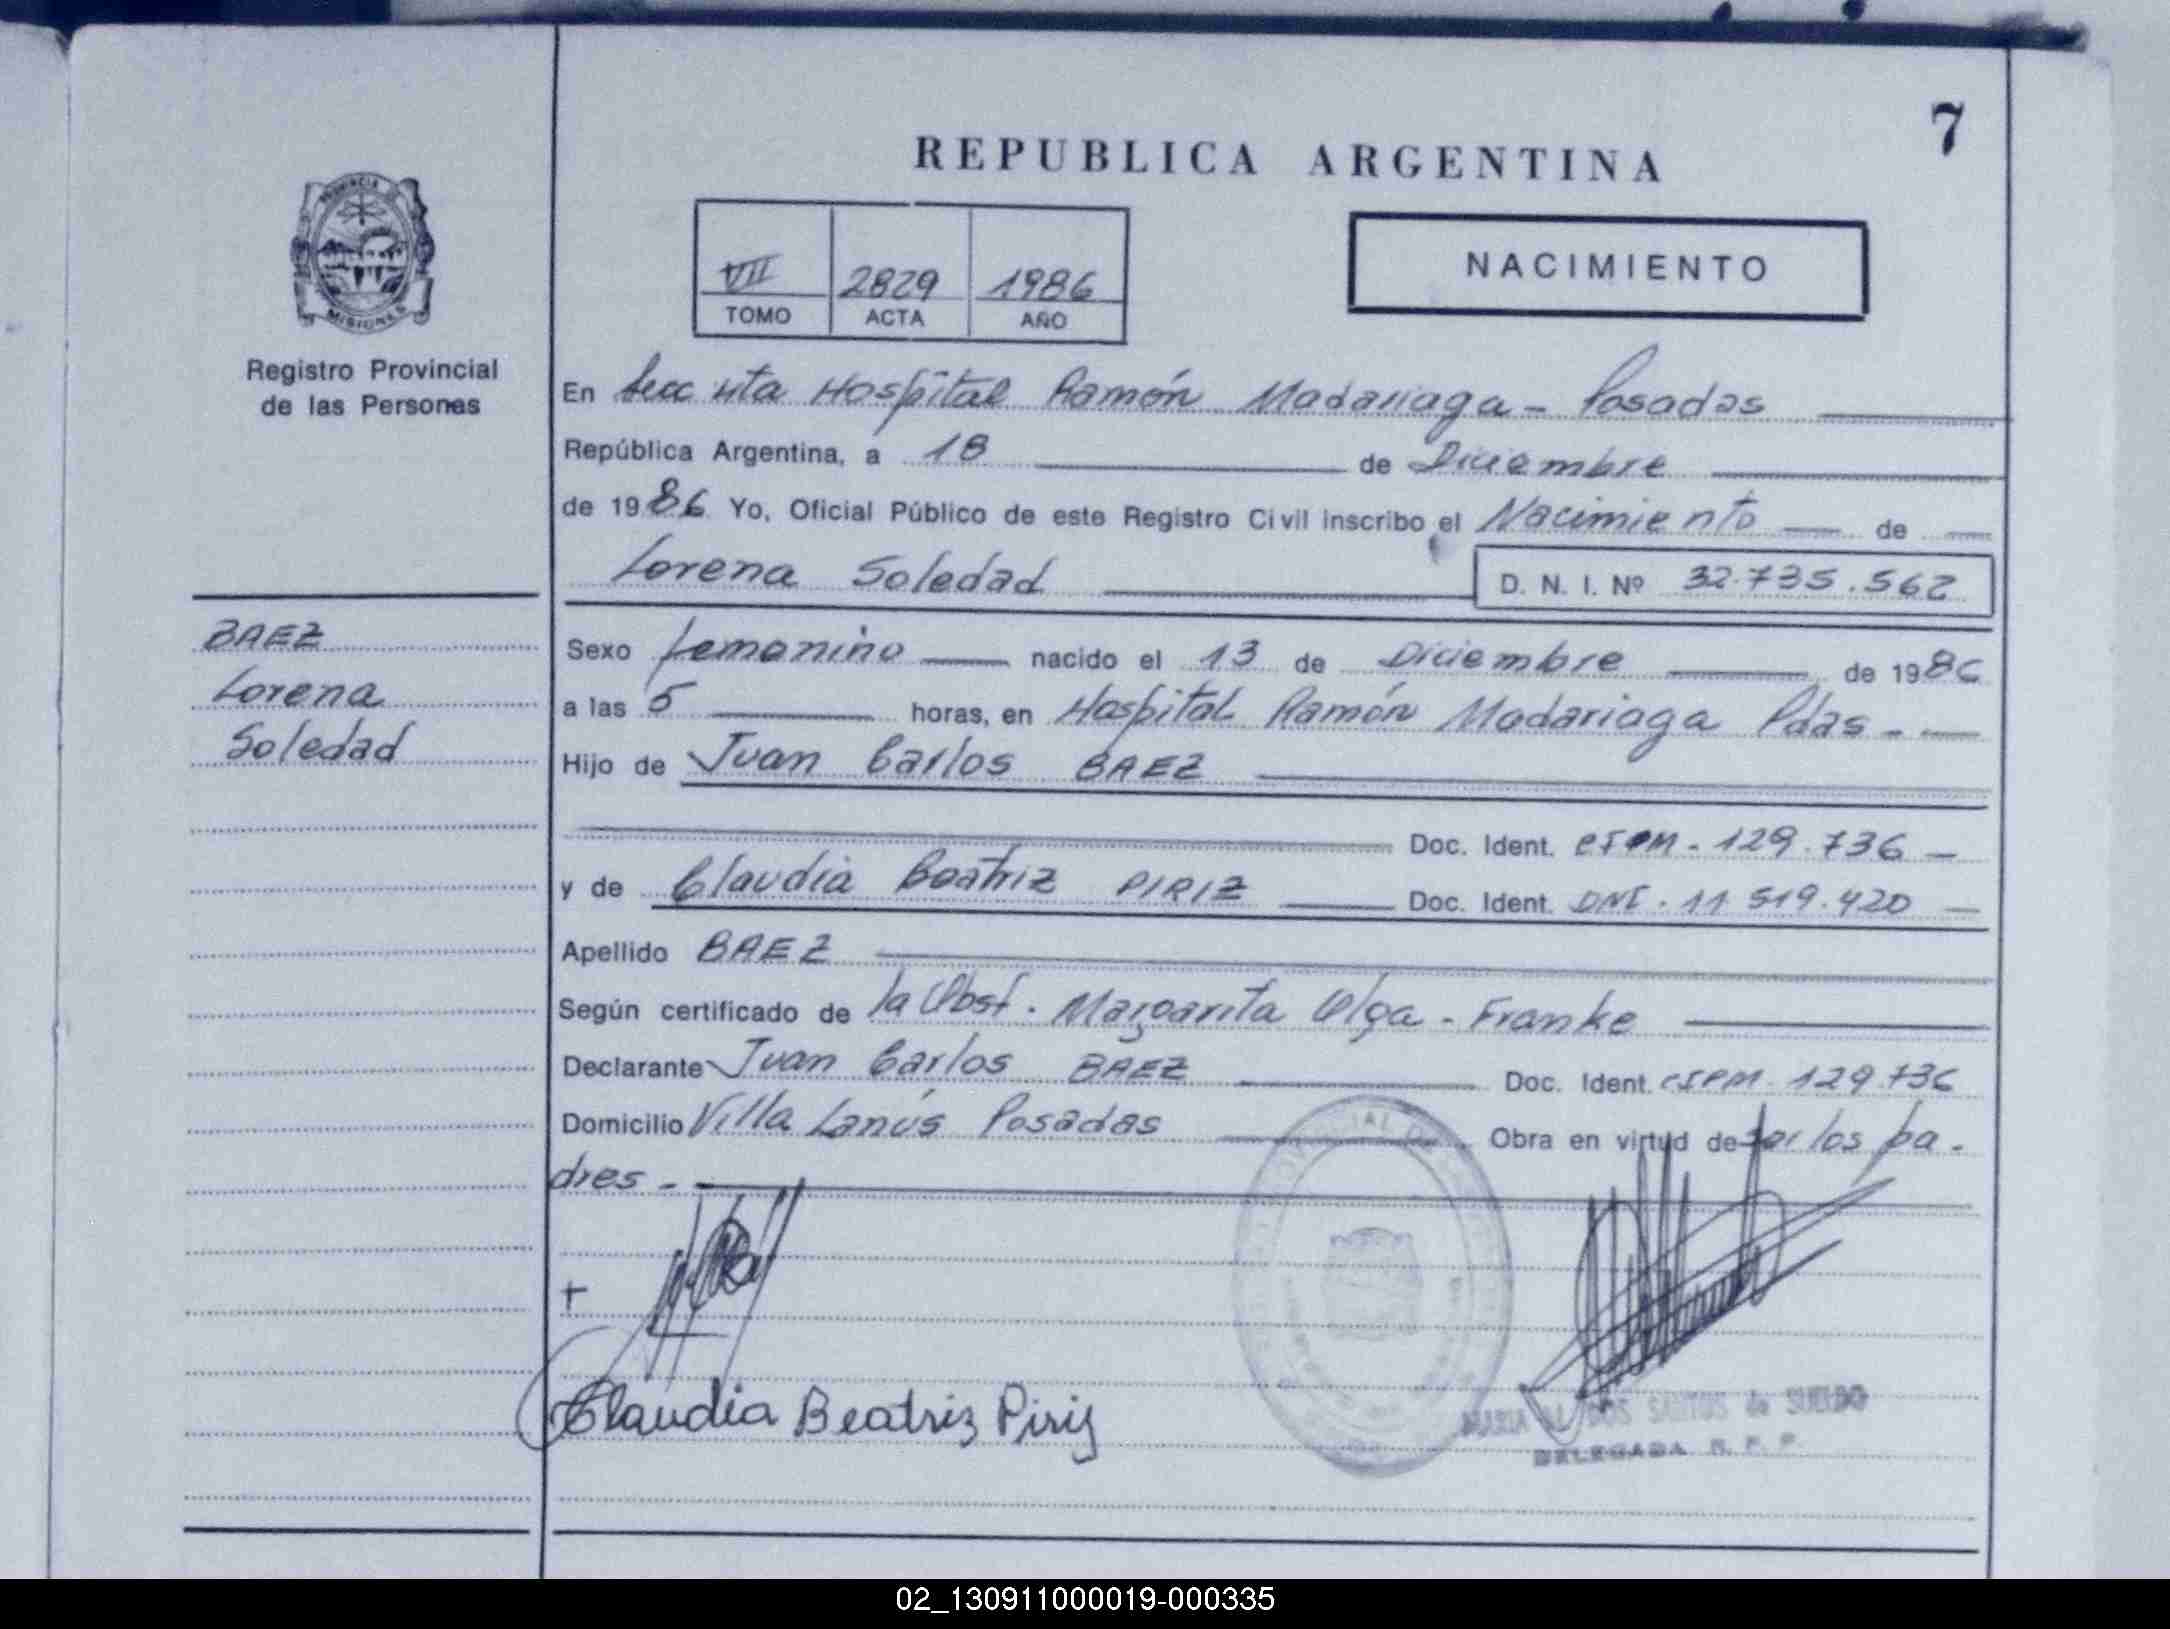 7
REPUBLICA ARGENTINA
PROVINCIA DE
MISIONES
VII 2829 1986
TOMO ACTA AÑO
NACIMIENTO
Registro Provincial
de las Personas
En Secc 4ta Hospital Ramón Madariaga - Posadas
República Argentina, a 18 de Diciembre
de 1986 Yo, Oficial Público de este Registro Civil inscribo el Nacimiento de
Lorena Soledad D. N. I. Nº 32.735.562
BAEZ
Lorena
Soledad
Sexo femenino nacido el 13 de Diciembre de 1986
a las 5 horas, en Hospital Ramón Madariaga Pdas -
Hijo de Juan Carlos BAEZ
Doc. Ident. CIPM. 129.736 -
y de Claudia Beatriz PIRIZ Doc. Ident. DNI. 11 519.420 -
Apellido BAEZ
Según certificado de la Obst. Margarita Olga - Franke
Declarante Juan Carlos BAEZ Doc. Ident. CIPM. 129.736
Domicilio Villa Lanús Posadas Obra en virtud de ser los pa-
dres -
Claudia Beatriz Piriz
MARIA DOS SANTOS de SUELDO
DELEGADA R. P. P.
02_130911000019-000335